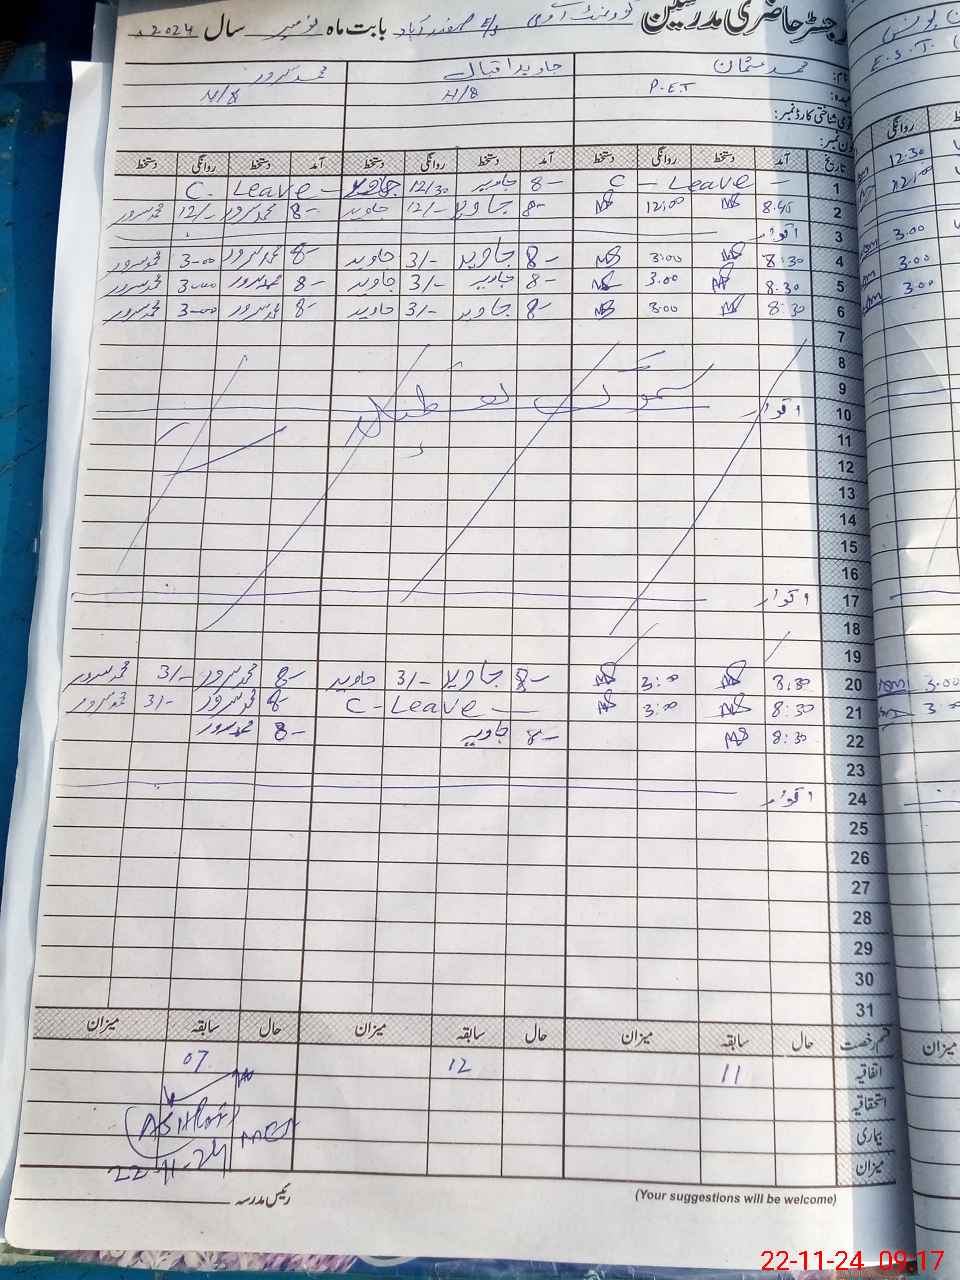 رجسٹر حاضری مدرسین بابت ماہ نومبر سال 2024ء
محمد عثمان جاوید اقبال محمد سرور
P.E.T N/Q N/Q
قومی شناختی کارڈ نمبر:
تاریخ آمد دستخط روانگی دستخط آمد دستخط روانگی دستخط آمد دستخط روانگی دستخط
1 C - Leave - 8- جاوید 12/30 جاوید C. Leave -
2 8.45 12:00 8- جاوید 12/- جاوید 8- محمد سرور 12/- محمد سرور
3 اتوار
4 8:30 3:00 8- جاوید 3/- جاوید 8- محمد سرور 3-00 محمد سرور
5 8.30 3.00 8- جاوید 3/- جاوید 8- محمد سرور 3-00 محمد سرور
6 8:30 3:00 8- جاوید 3/- جاوید 8- محمد سرور 3-00 محمد سرور
7
8
9 سموگ تعطیل
10 اتوار
11
12
13
14
15
16
17 اتوار
18
19
20 8.30 3:00 8- جاوید 3/- جاوید 8- محمد سرور 3/- محمد سرور
21 8:30 3:00 C-Leave - 8- محمد سرور 3/- محمد سرور
22 8:30 8- جاوید 8- محمد سرور
23
24 اتوار
25
26
27
28
29
30
31
قسم رخصت حال سابقہ میزان حال سابقہ میزان حال سابقہ میزان
اتفاقیہ 11 12 07
استحقاقیہ
بیماری
میزان
22-11-24
رئیس مدرسہ
(Your suggestions will be welcome)
E.S.T.
روانگی
12.30
12:00
3.00
3.00
3.00
3.00
میزان
22-11-24 09:17